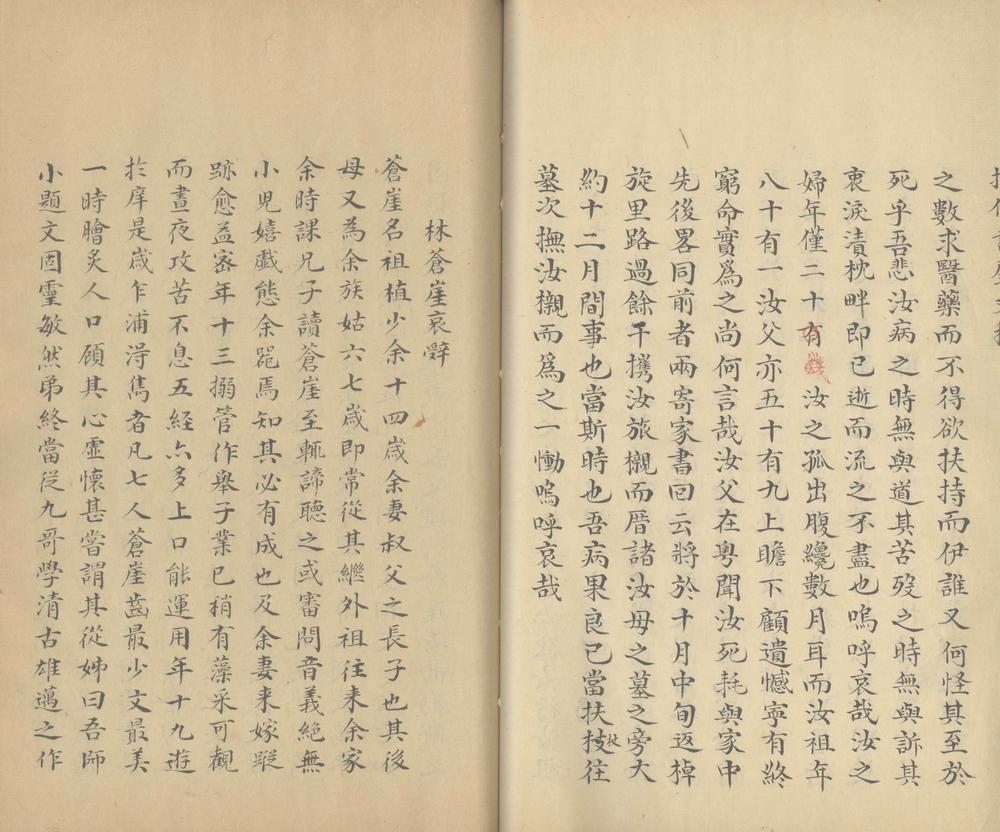 之數求醫藥而不得欲扶持而伊誰又何怪其至於
死乎吾悲汝病之時無與道其苦歿之時無與訴其
衷淚漬枕畔即已逝而流之不盡也嗚呼哀哉汝之
婦年僅二十有幾汝之孤出腹纔數月耳而汝祖年
八十有一汝父亦五十有九上瞻下顧遺憾寧有終
窮命實爲之尚何言哉汝父在粵聞汝死耗與家中
先後畧同前者兩寄家書回云將於十月中旬返棹
旋里路過餘干攜汝旅櫬而厝諸汝母之墓之旁大
約十二月間事也當斯時也吾病果良已當扶杖往
墓次撫汝櫬而爲之一慟嗚呼哀哉
林蒼崖哀辭
蒼崖名祖植少余十四歲余妻叔父之長子也其後
母又為余族姑六七歲即常從其繼外祖往来余家
余時課兄子讀蒼崖至輒諦聽之或審問音義絕無
小児嬉戲態余䇄焉知其必有成也及余妻来嫁蹤
跡愈益密年十三搦管作舉子業已稍有藻采可觀
而晝夜攻苦不息五經亦多上口能運用年十九遊
於庠是歲乍浦淂雋者凡七人蒼崖齒最少文最美
一時膾炙人口顧其心虛懷甚嘗謂其從姊曰吾師
小題文固靈敏然弟終當從九哥學清古雄邁之作